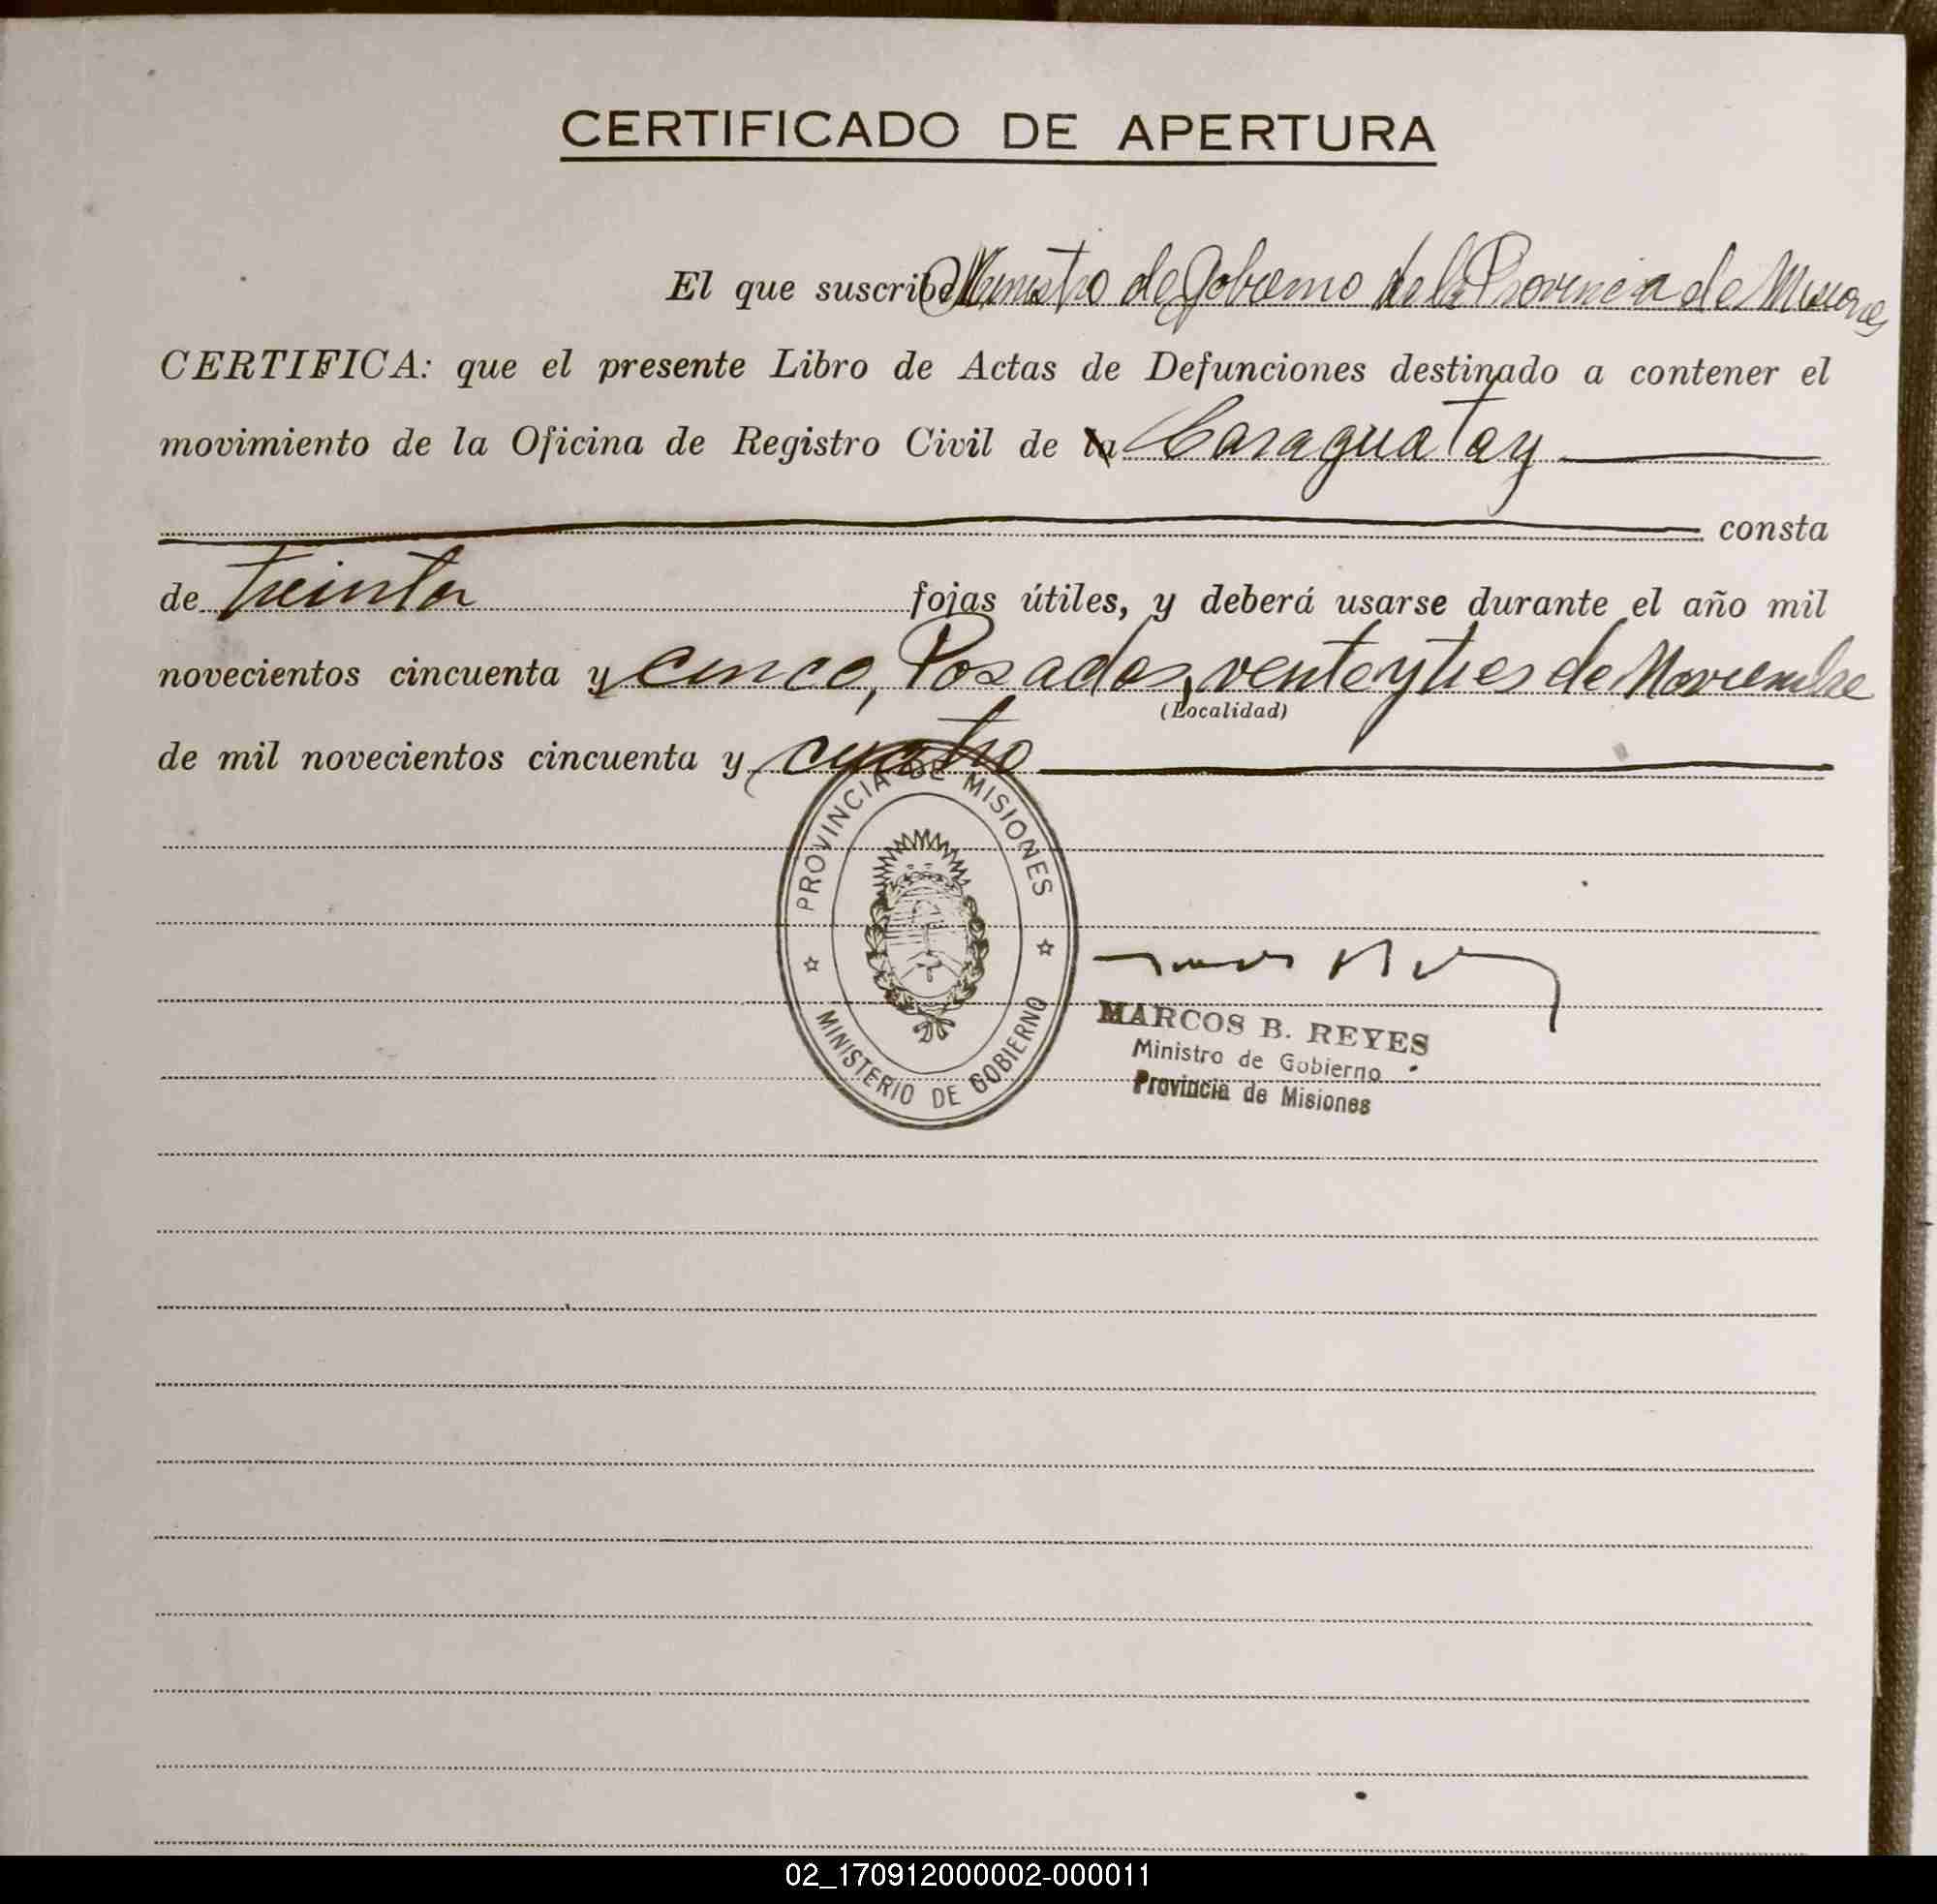 CERTIFICADO DE APERTURA
El que suscribe Ministro de Gobierno de la Provincia de Misiones
CERTIFICA: que el presente Libro de Actas de Defunciones destinado a contener el
movimiento de la Oficina de Registro Civil de la Caraguatay
consta
de treinta fojas útiles, y deberá usarse durante el año mil
novecientos cincuenta y cinco, Posadas, veinte y tres de Noviembre
(Localidad)
de mil novecientos cincuenta y cuatro
PROVINCIA DE MISIONES
MINISTERIO DE GOBIERNO
MARCOS B. REYES
Ministro de Gobierno
Provincia de Misiones
02_170912000002-000011